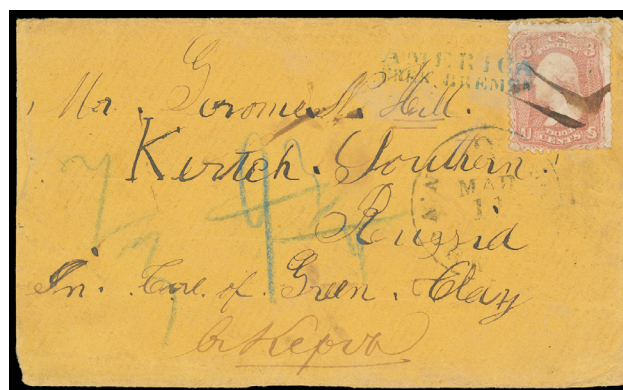 AMERICA
ÜBER BREMEN
3 U.S. POSTAGE 3
THREE CENTS
U S
Mr. Gerome N. Hill.
Kertch. Southern.
MAR
11
Russia
In. Care. of. Green. Clay
в Керчь